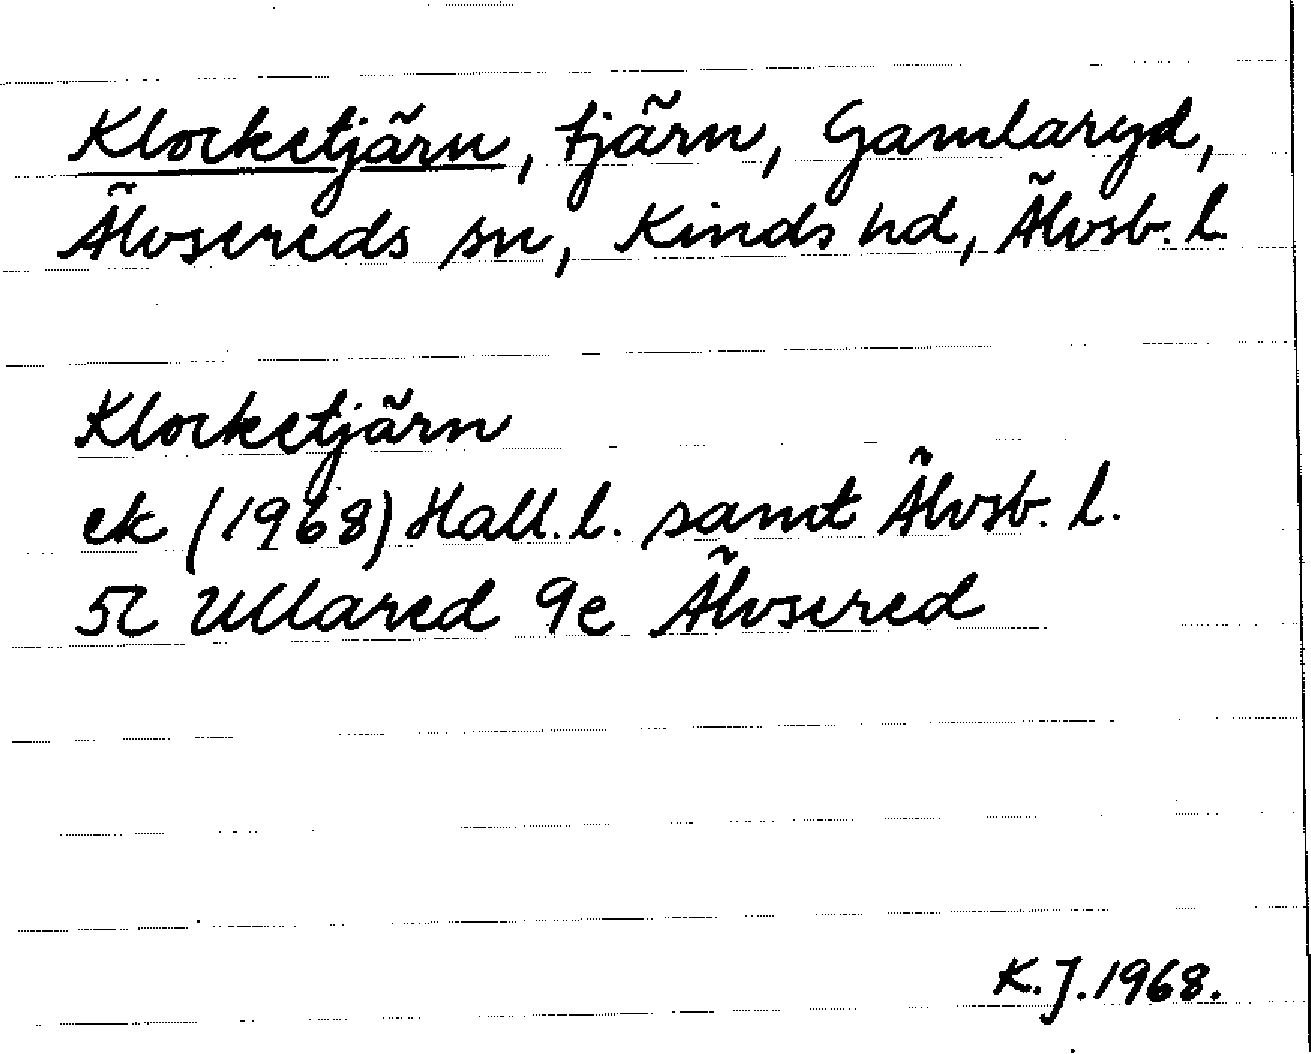 Klocketjärn, tjärn, Gamlaryd,
Älvsereds sn, Kinds hd, Älvsb. l.
Klocketjärn
ek (1968) Hall. l. samt Älvsb. l.
5C Ullared 9e Älvsered
K.J. 1968.